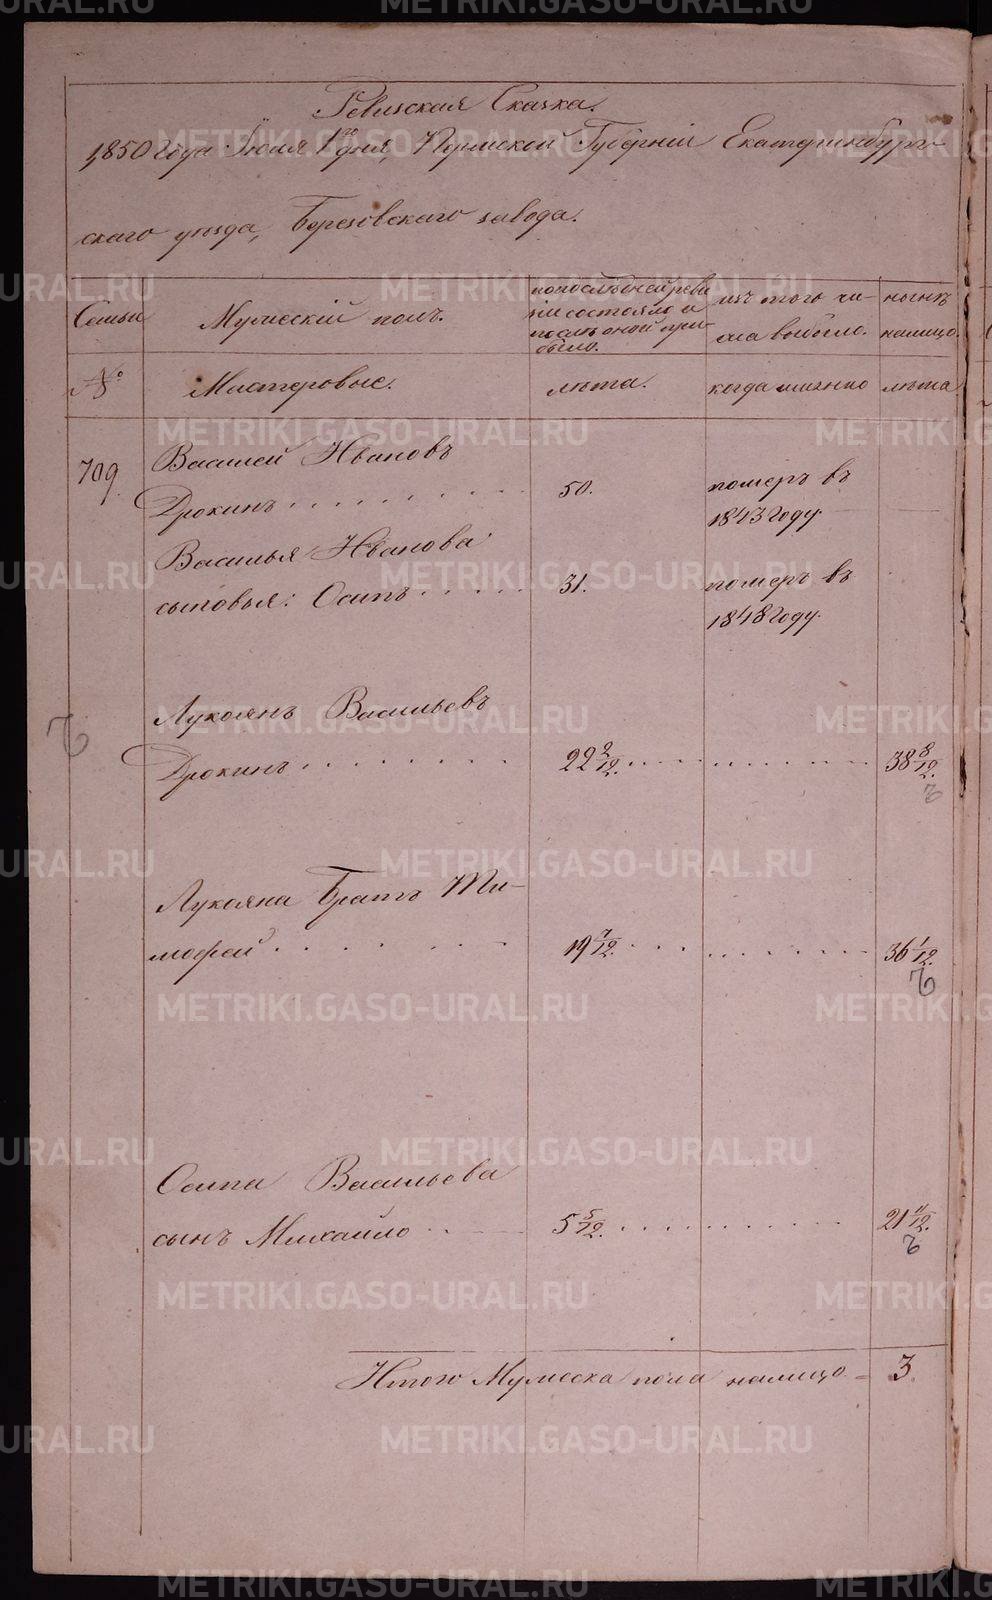 Ревизская Сказка.
1850 года Июля 1го дня, Пермской Губерніи Екатеринбург-
скаго уезда, Березовскаго завода.
Семьи
Мужескій полъ.
по последней реви
зіи состояло и
после оной при-
было.
изъ того чи-
сла выбыло.
ныне
налицо.
№
Мастеровые.
лета.
когда именно
лета
709.
Василей Ивановъ
Дрокинъ
50.
померъ въ
1843 году.
Василья Иванова
сыновья: Осипъ
31.
померъ въ
1848 году.
Лукоянъ Васильевъ
Дрокинъ
22 2/12.
38 8/12.
Лукояна братъ Ти-
мофей
19 7/12.
36 1/12.
Осипа Васильева
сынъ Михайло
5 5/12.
21 11/12.
Итого Мужеска пола налицо = 3.
METRIKI.GASO-URAL.RU